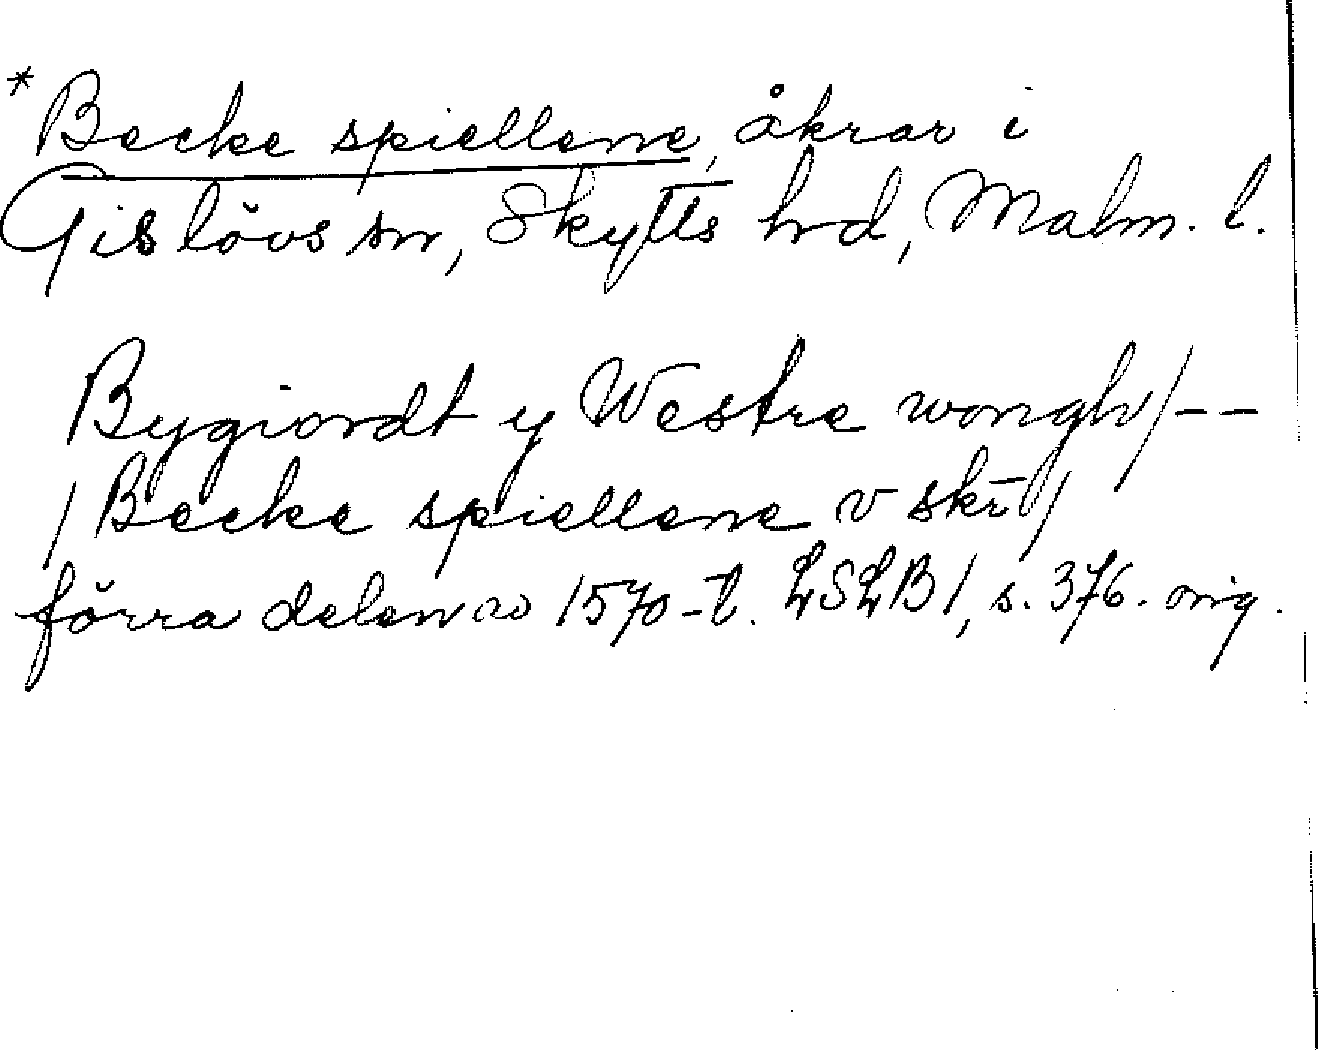 *Becke spiellene, åkrar i
Gislövs sn, Skytts hrd, Malm. l.
Bygiordt y Westre wongh/--
/Becke spiellene v skr/
förra delen av 1570-t. LSLB1, s. 376. orig.